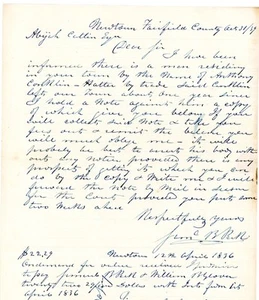 Newtown Fairfield County Oct 31/37
Abijah Catlin Esqr
Dear Sir
I have been
informed there is a man residing
in your town by the Name of Anthony
a Hatter by trade said
left our town about one year since
I hold a Note against him a copy
of which I give you below if you
will collect said Note & take your
fees out & remit the balance you
will much oblige me it will
probably be best to arrest his body with
out any notice provided there is any
prospect of getting it which you can
do by this Copy & Write me & I will
forward the note by Mail in season
for the Court provided you put some
two weeks ahead
Respectfully Yours
B
$22.29 Newtown 12th April 1836
for value received I promise
to pay B & William B Glover
twenty two 29/100 Dollars with Int. from 1st
April 1836